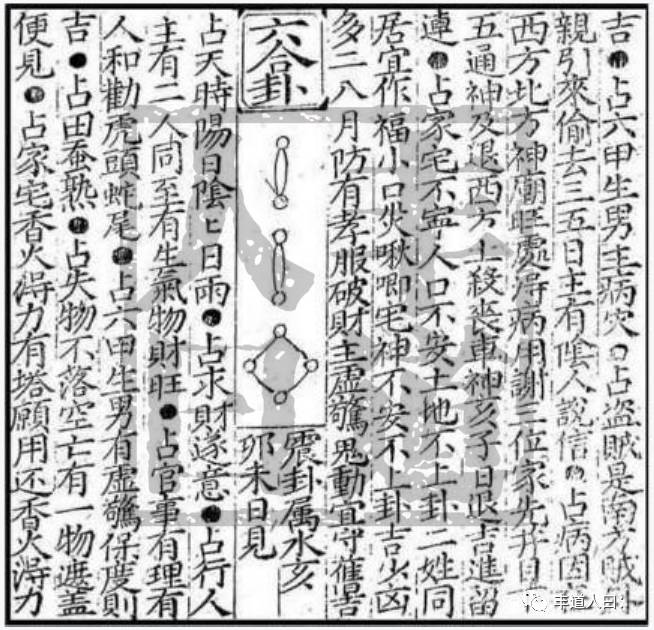 吉●占六甲生男主病灾○占盗賊是南方賊外
親引來偷去三五日主有陰人說信●占病因
西方北方神廟旺處淂病用謝三位家先并
五通神及退西方土殺喪車神亥子日退吉進
連●占家宅不寧人口不安土地不上卦二姓同
居宜作福小口失啾唧宅神不安不上卦吉少凶
多二八月防有孝服破財主虛驚鬼動宜守舊
六合卦
震卦属水亥
夘未日見
占天時陽日陰匕日雨●占求財遂意●占行人
主有二人同至有生氣物財旺●占官事有理有
人和勸虎頭蛇尾●占六甲生男有虛驚保度則
吉●占田蚕熟●占失物不落空亡有一物遮蓋
便見●占家宅香火淂力有塔願用还香火淂力